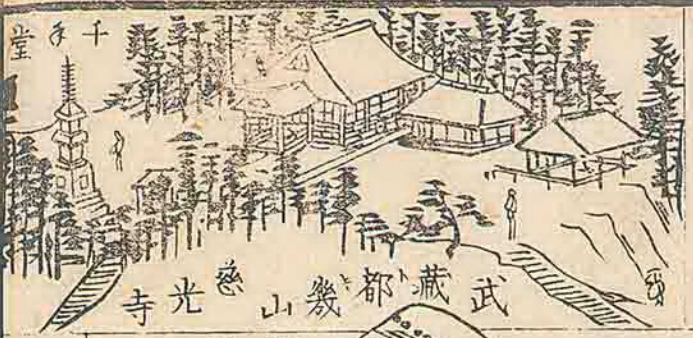 千手堂
武蔵都幾山慈光寺